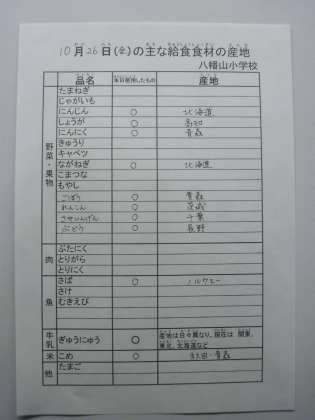 10月26日(金)の主な給食食材の産地
八幡山小学校
品名 本日使用したもの 産地
野菜・果物
たまねぎ
じゃがいも
にんじん ○ 北海道
しょうが ○ 高知
にんにく ○ 青森
きゅうり
キャベツ
ながねぎ ○ 北海道
こまつな
もやし
ごぼう ○ 青森
れんこん ○ 茨城
さやいんげん ○ 千葉
ぶどう ○ 長野
肉
ぶたにく
とりがら
とりにく
魚
さば ○ ノルウェー
さけ
むきえび
牛乳 ぎゅうにゅう ○ 産地は日々異なり、現在は 関東、
東北、北海道など
米 こめ ○ 秋田・青森
他 たまご